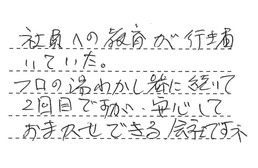 社員への教育が行き届
いていた。
フロの湯わかし器に続いて
2回目ですが、安心して
おまかせできる会社ですネ